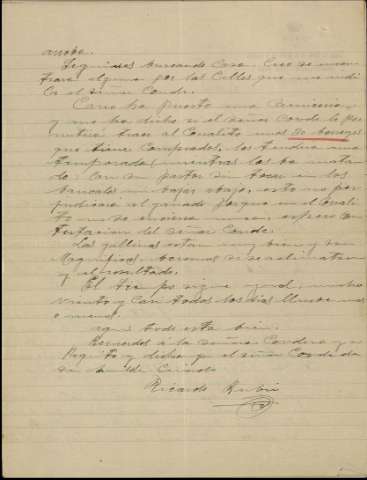 arroba.
Seguimos buscando Casa. Creo se encon
trara alguna por las Calles que me indi
ca el señor Conde.
Cano ha puesto una Carniceria, y
me ha dicho si el señor Conde le per
mitiria traer al Corralito unos 30 borregos
que tiene Comprados, los tendria una
temporada, mientras los ba matan
do. Con su pastor sin tocar en los
bancales ni bajar abajo, esto no per
judicaria el ganado porque en el Corali
to no se encierra nunca, espero con
testacion del señor Conde.
Las gallinas estan muy bien y son
Magnificas, haremos se aclimaten
y el resultado.
El tiempo sigue igual, mucho
viento y Casi todos los dias llueve mas
o menos.
aqui todo esta bien.
Recuerdos á la señora Condesa y a
Paquito y disponga el señor Conde de
su humilde Criado
Ricardo Rubio